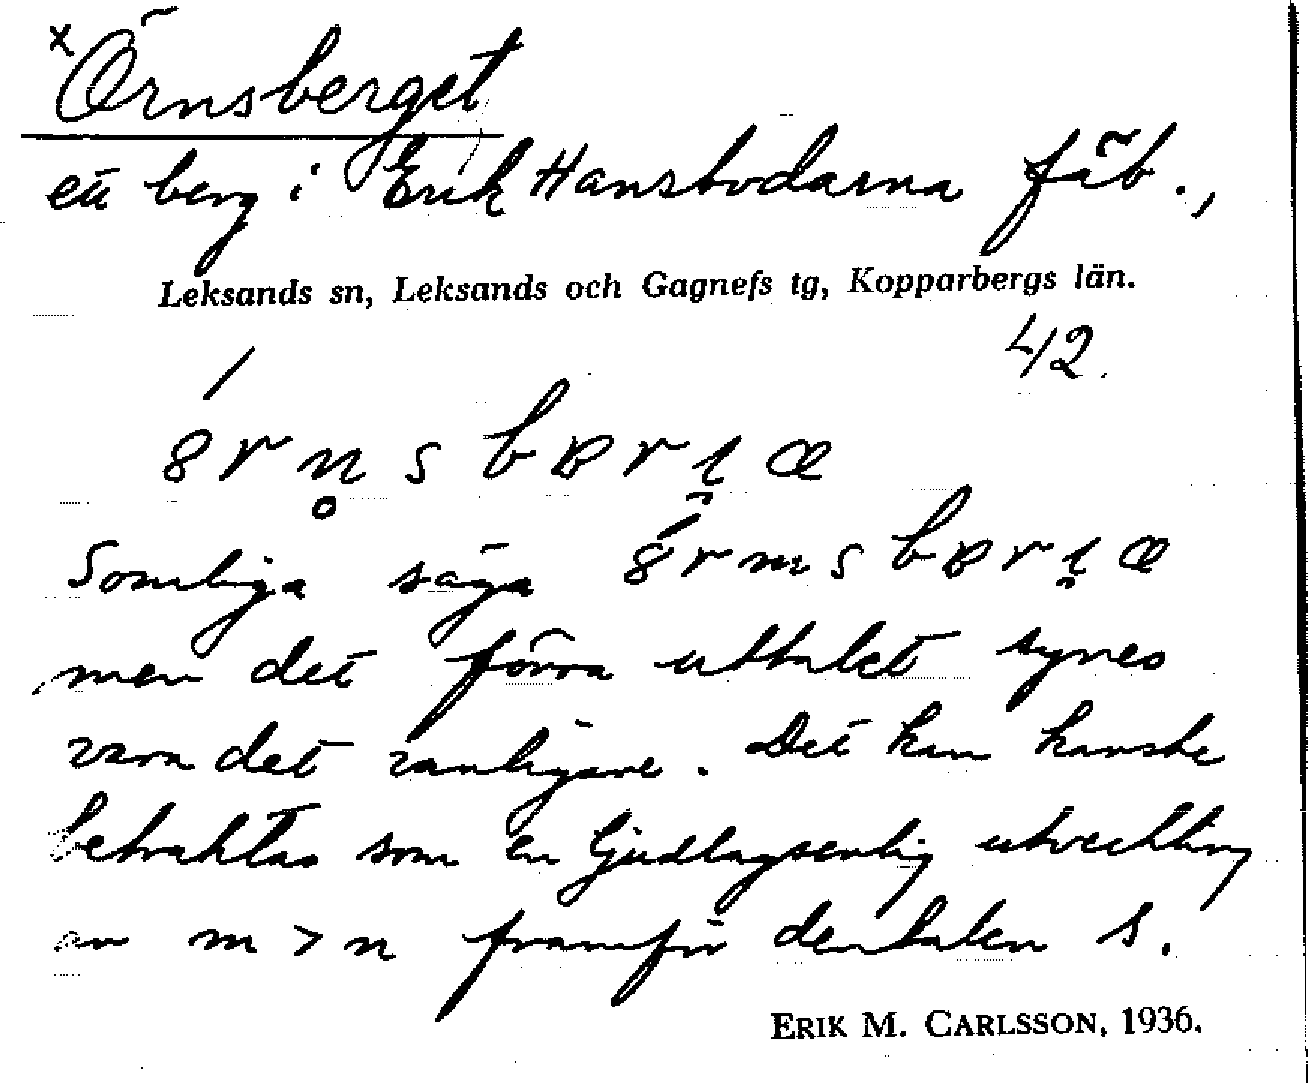 x Örnsberget
ett berg i Erik Hansbodarna fäb.,
Leksands sn, Leksands och Gagnefs tg, Kopparbergs län.
42.
Somliga säga
men det förra uttalet synes
vara det vanligare. Det kan kanske
betraktas som en ljudlagsenlig utveckling
av m > n framför dentalen s.
ERIK M. CARLSSON, 1936.